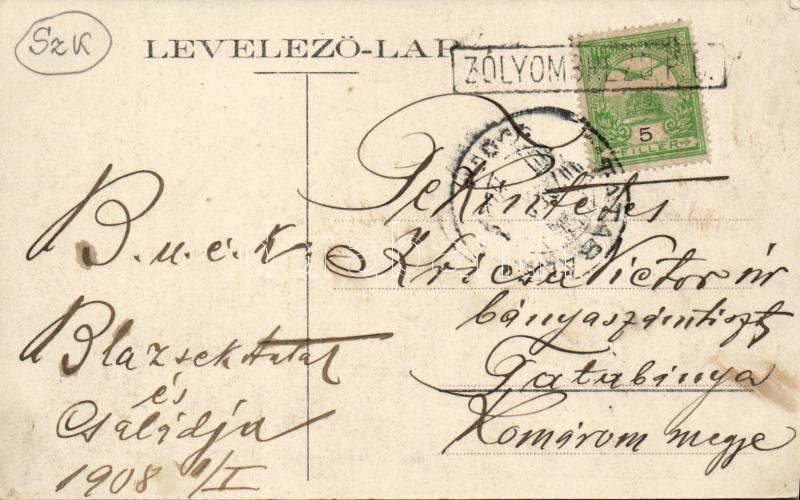 SzK
LEVELEZŐ-LAP
ZÓLYOM
5
FILLER
B. u. é. k.
Blazsek Antal
és
Családja
1908 1/I
Tekintetes
Kricza Victor úr
bányaszámtiszt
Tatabánya
Komárom megye
darabanth